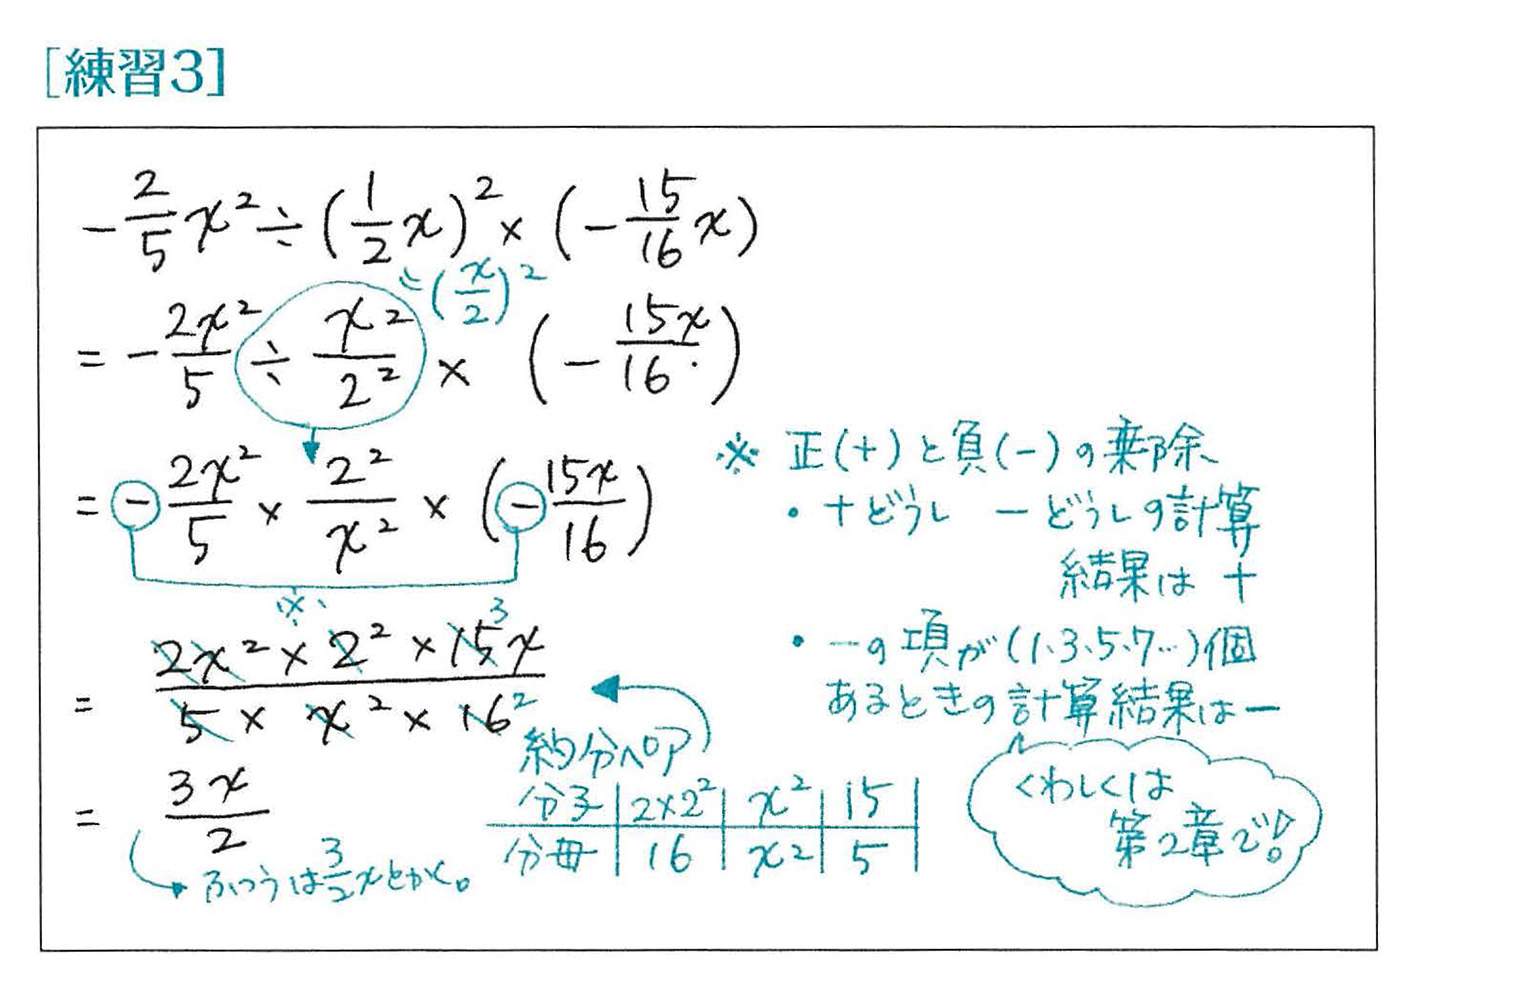 [練習3]
-2/5 x² ÷ (1/2 x)² × (-15/16 x)
= (x/2)²
= -2x²/5 ÷ x²/2² × (-15x/16)
= -2x²/5 × 2²/x² × (-15x/16)
※
= 2x² × 2² × 15x / 5 × x² × 16
3
2
= 3x/2
ふつうは3/2 xとかく。
約分ペア
分子 | 2×2² | x² | 15 |
分母 | 16 | x² | 5 |
※ 正(+)と負(-)の乗除
・+どうし -どうしの計算
結果は +
・-の項が(1、3、5、7…)個
あるときの計算結果は-
くわしくは
第2章で!